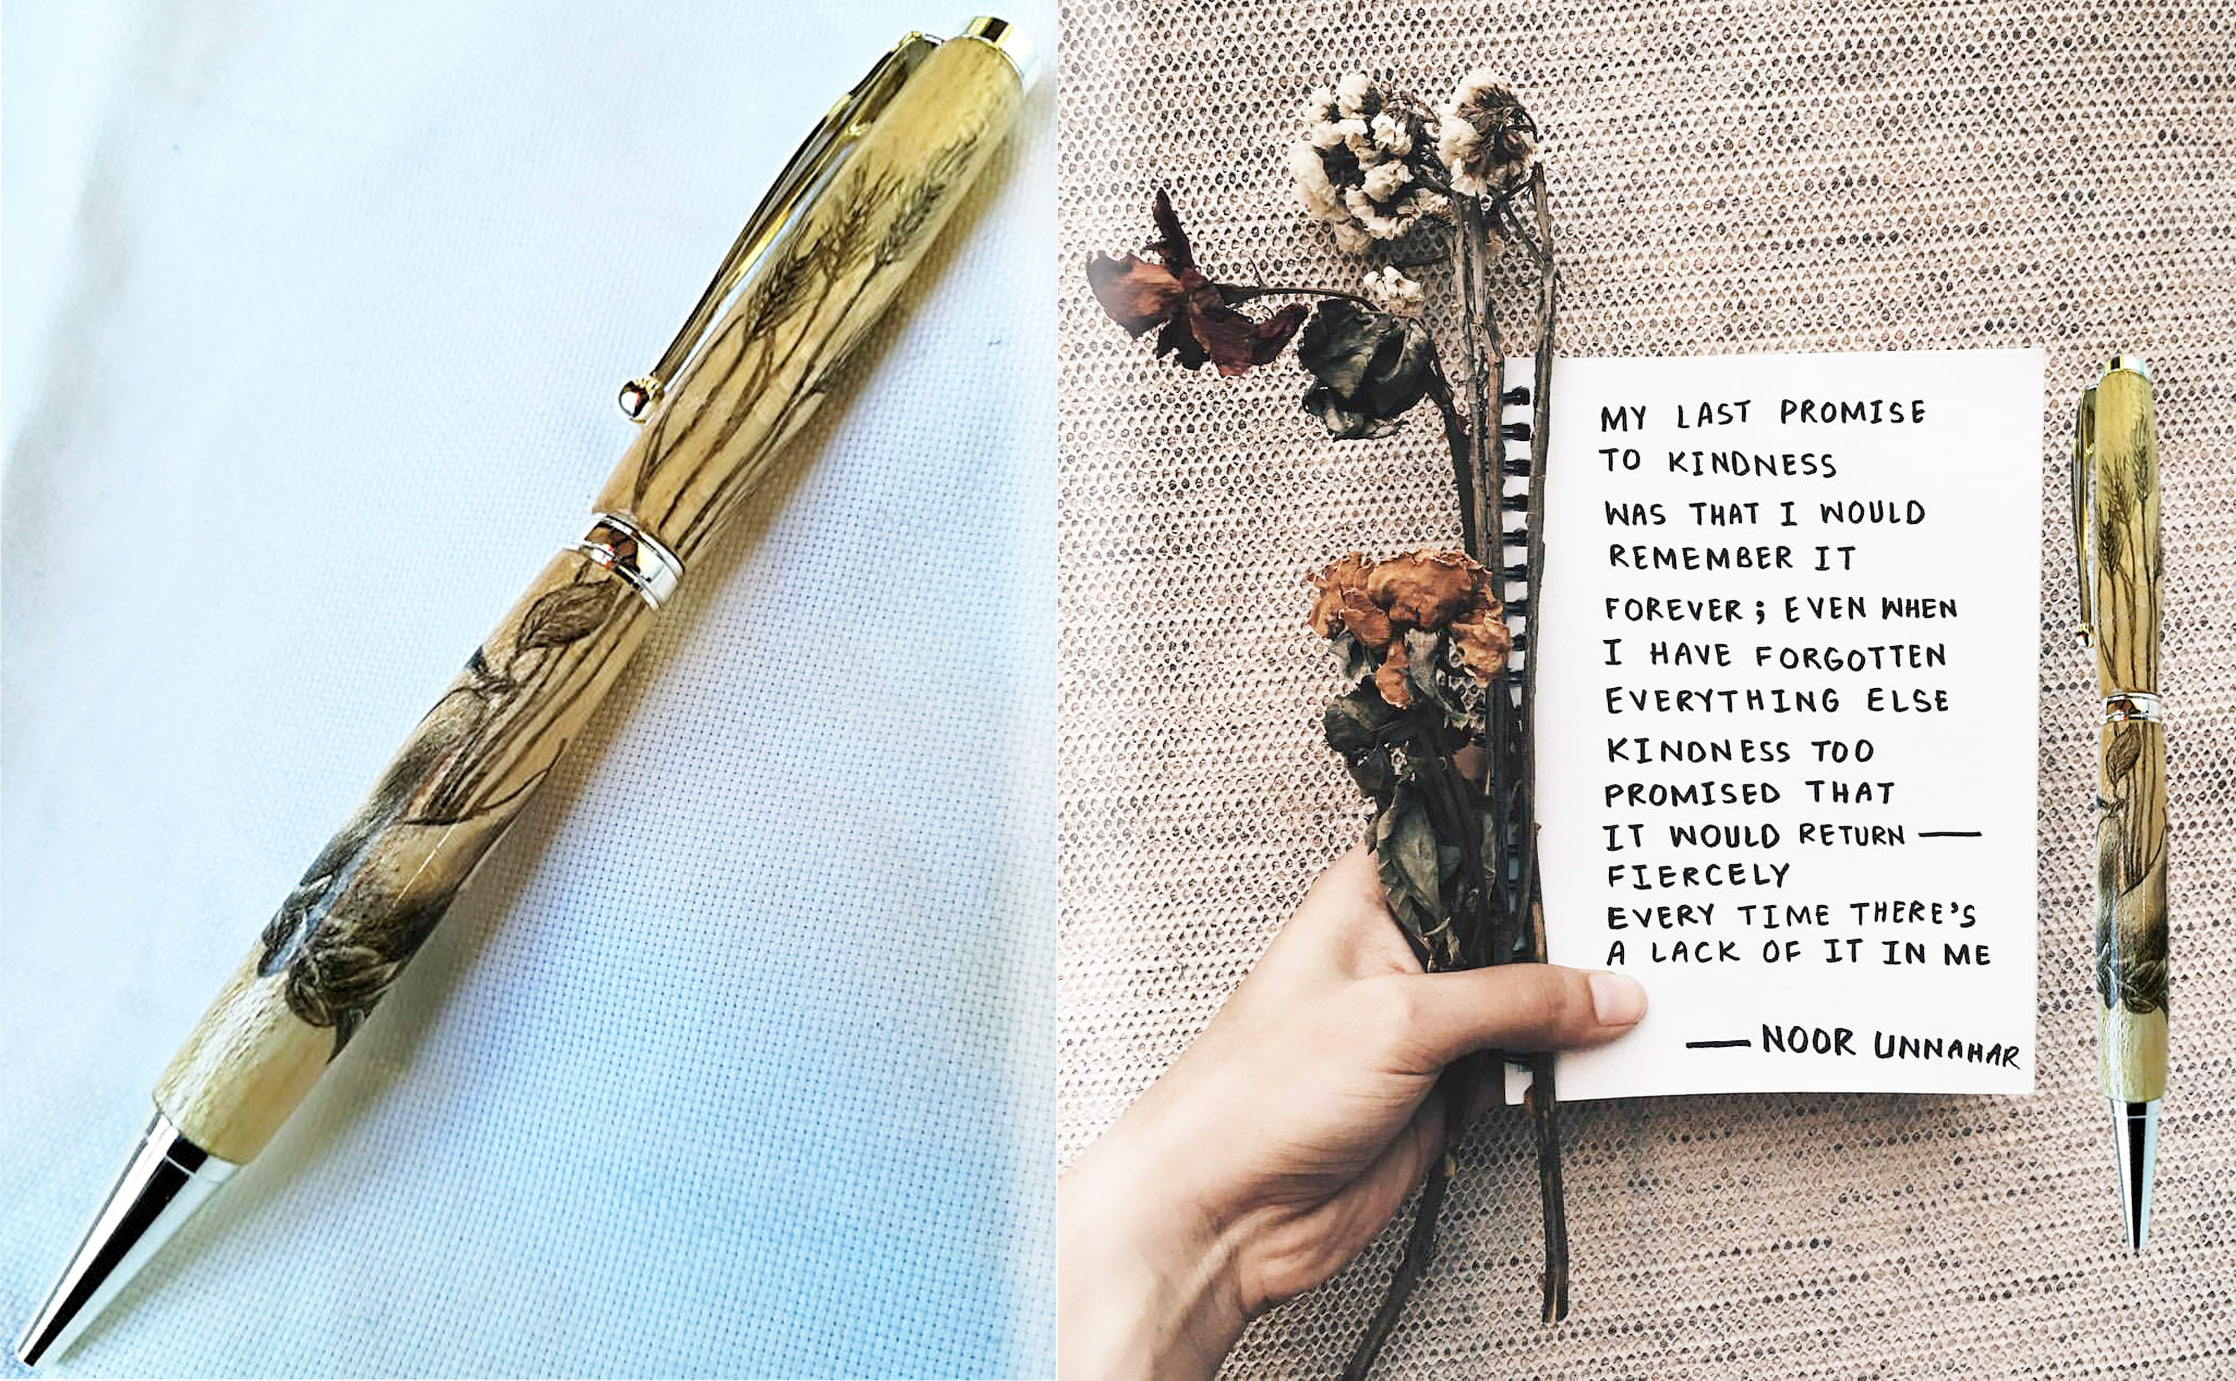 MY LAST PROMISE
TO KINDNESS
WAS THAT I WOULD
REMEMBER IT
FOREVER; EVEN WHEN
I HAVE FORGOTTEN
EVERYTHING ELSE
KINDNESS TOO
PROMISED THAT
IT WOULD RETURN —
FIERCELY
EVERY TIME THERE'S
A LACK OF IT IN ME
— NOOR UNNAHAR